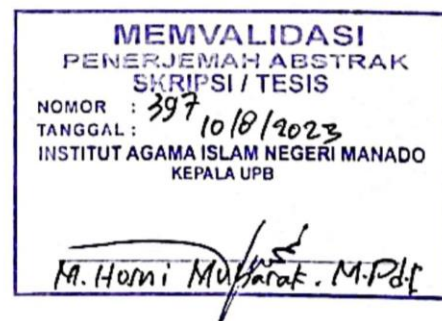 MEMVALIDASI
PENERJEMAH ABSTRAK
SKRIPSI / TESIS
NOMOR : 397
TANGGAL : 10/8/2023
INSTITUT AGAMA ISLAM NEGERI MANADO
KEPALA UPB
M. Hosni Mubarak. M.Pd.I